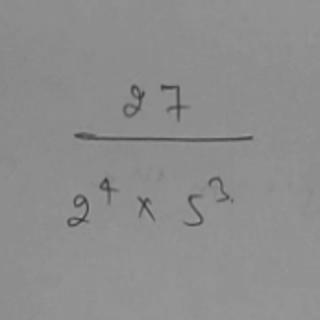 27
2⁴ × 5³